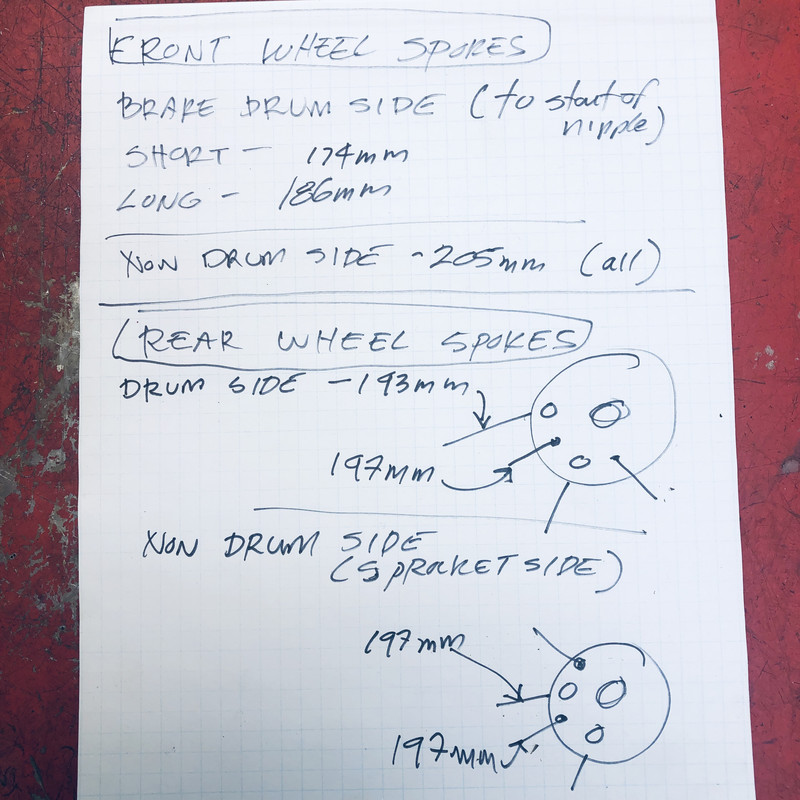 FRONT WHEEL SPOKES
BRAKE DRUM SIDE (to start of
nipple)
SHORT - 174mm
LONG - 186mm
NON DRUM SIDE - 205mm (all)
REAR WHEEL SPOKES
DRUM SIDE - 193mm
197mm
NON DRUM SIDE
(SPROKET SIDE)
197mm
197mm